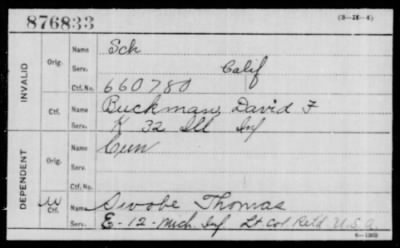 876833
(3-28-4)
INVALID
Orig.
Name Sch
Serv. Calif
Ctf. No. 660780
Ctf.
Name Buckman, David F
Serv. K 32 Ill Inf
DEPENDENT
Orig.
Name Cun
Serv.
Ctf. No.
W Ctf.
Name Swobe Thomas
Serv. E-12-Mich Inf Lt Col Retd U.S.A